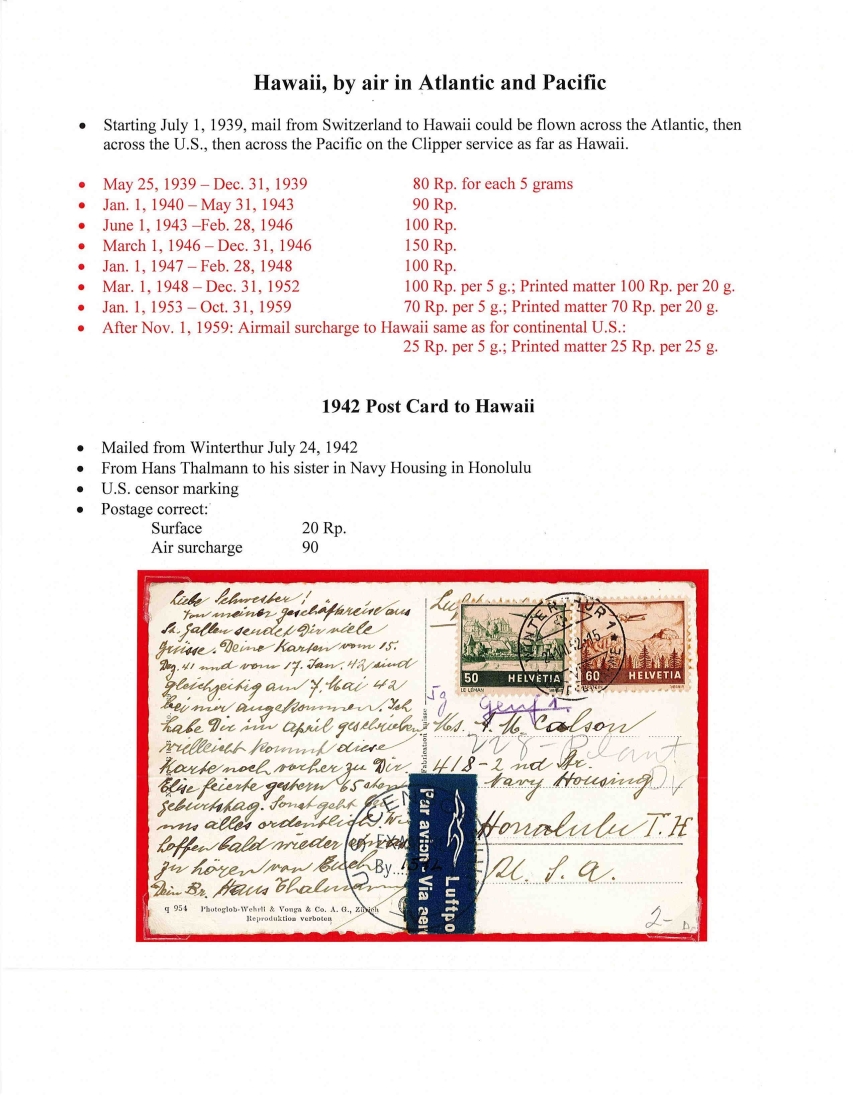 Hawaii, by air in Atlantic and Pacific
• Starting July 1, 1939, mail from Switzerland to Hawaii could be flown across the Atlantic, then
across the U.S., then across the Pacific on the Clipper service as far as Hawaii.
• May 25, 1939 – Dec. 31, 1939 80 Rp. for each 5 grams
• Jan. 1, 1940 – May 31, 1943 90 Rp.
• June 1, 1943 –Feb. 28, 1946 100 Rp.
• March 1, 1946 – Dec. 31, 1946 150 Rp.
• Jan. 1, 1947 – Feb. 28, 1948 100 Rp.
• Mar. 1, 1948 – Dec. 31, 1952 100 Rp. per 5 g.; Printed matter 100 Rp. per 20 g.
• Jan. 1, 1953 – Oct. 31, 1959 70 Rp. per 5 g.; Printed matter 70 Rp. per 20 g.
• After Nov. 1, 1959: Airmail surcharge to Hawaii same as for continental U.S.:
25 Rp. per 5 g.; Printed matter 25 Rp. per 25 g.
1942 Post Card to Hawaii
• Mailed from Winterthur July 24, 1942
• From Hans Thalmann to his sister in Navy Housing in Honolulu
• U.S. censor marking
• Postage correct:
Surface 20 Rp.
Air surcharge 90
Liebe Schwester!
Von meiner geschäftsreise aus
St. Gallen sendet Dir viele
Grüsse. Deine Karten vom 15.
Dez. 41 und vom 17. Jan. 42 sind
gleichzeitig am 7. Mai 42
bei mir angekommen. Ich
habe Dir im April geschrieben
vielleicht kommt diese
Karte noch vorher zu Dir.
Elise feierte gestern 65 sten
Geburtstag. Sonst geht
uns alles ordentlich. Wir
hoffen bald wieder
zu hören von Euch
Dein Br. Hans Thalmann
q 954 Photoglob-Wehrli & Vouga & Co. A. G., Zürich
Reproduktion verboten
WINTERTHUR 1
50 HELVETIA
LE LÉMAN
60 HELVETIA
5g
Genf 1.
Ms. F. M. Calson
228-Plant
418-2 nd Str.
Navy Housing
Honolulu T. H
U. S. A.
Par avion - Via aer
Luftpo
U.S. CEN
EXA
By
2-